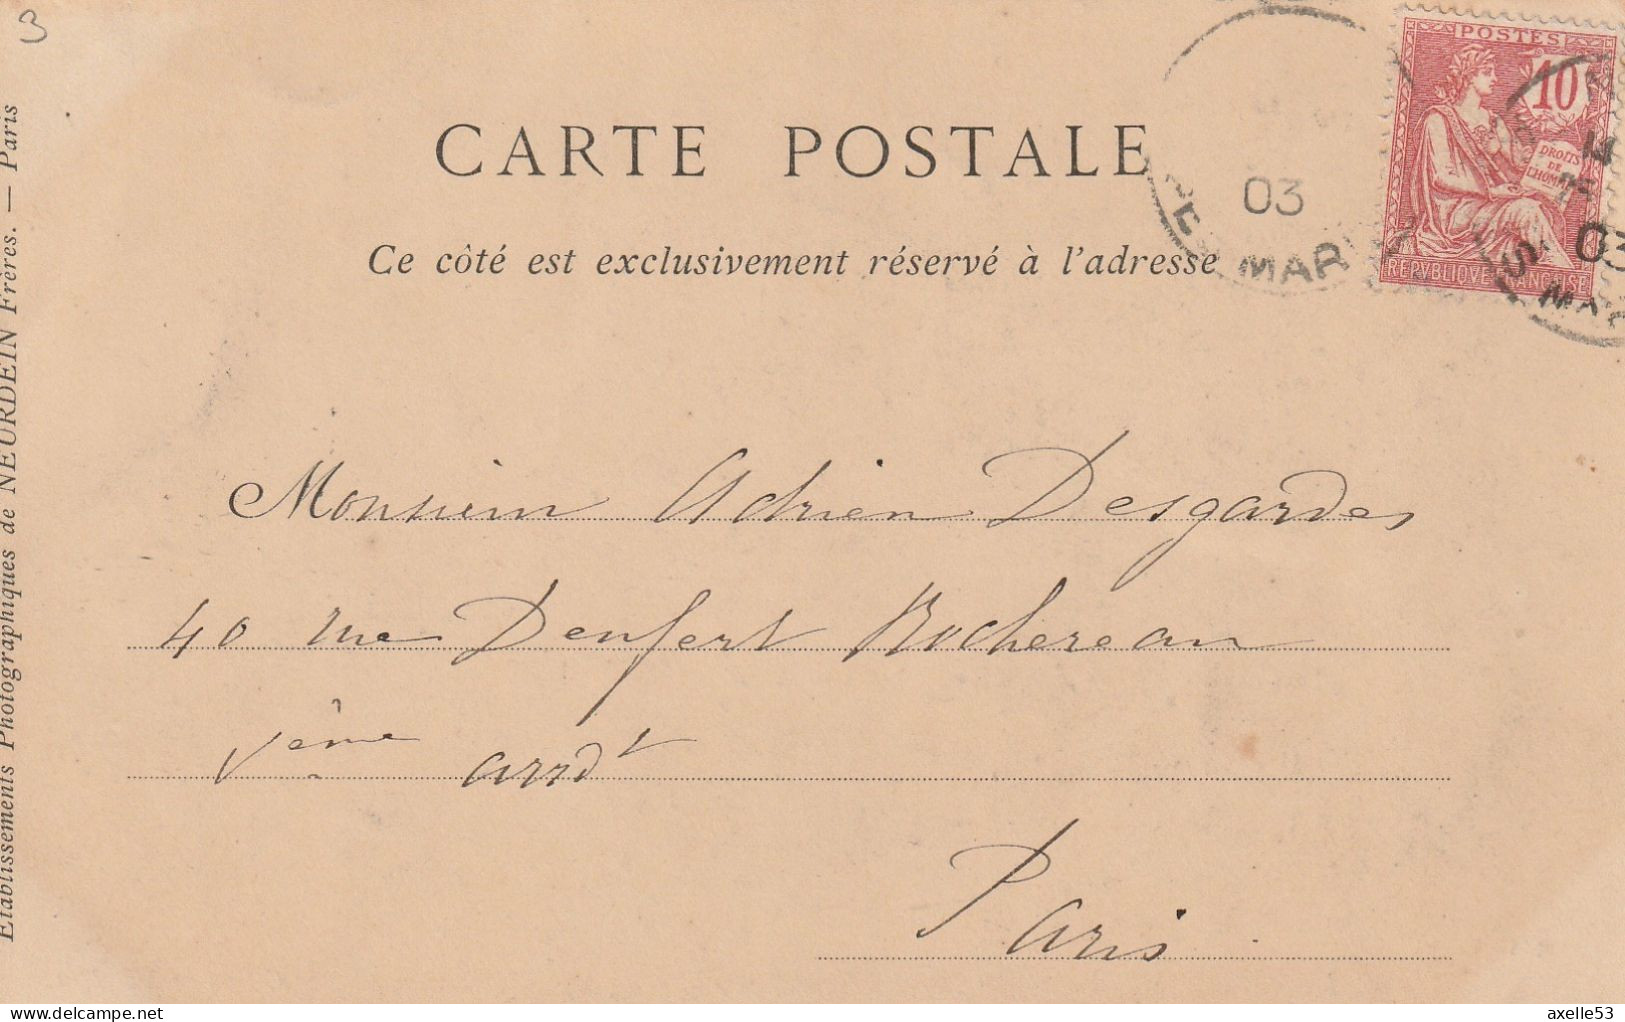 3
CARTE POSTALE
Ce côté est exclusivement réservé à l'adresse
POSTES
10
DROITS
DE
L'HOMME
REPVBLIQVE FRANÇAISE
03
MAR
14
03
MA
Monsieur Adrien Desgardes
40 rue Denfert Rochereau
Vème arrdt
Paris
Etablissements Photographiques de NEURDEIN Frères. — Paris
delcampe.net
axelle53